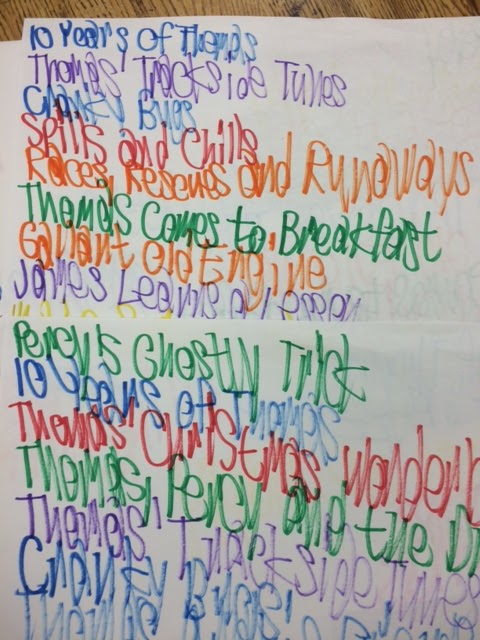 10 Years of Thomas
Thomas' Trackside Tunes
Cranky Bugs
Spills and Chills
Races, Rescues and Runaways
Thomas Comes to Breakfast
Gallant Old Engine
James Learns a Lesson
Percy's Ghostly Trick
10 Years of Thomas
Thomas' Christmas Wonderl
Thomas, Percy and the Dr
Thomas' Trackside Tunes
Cranky Bugs
Thomas'